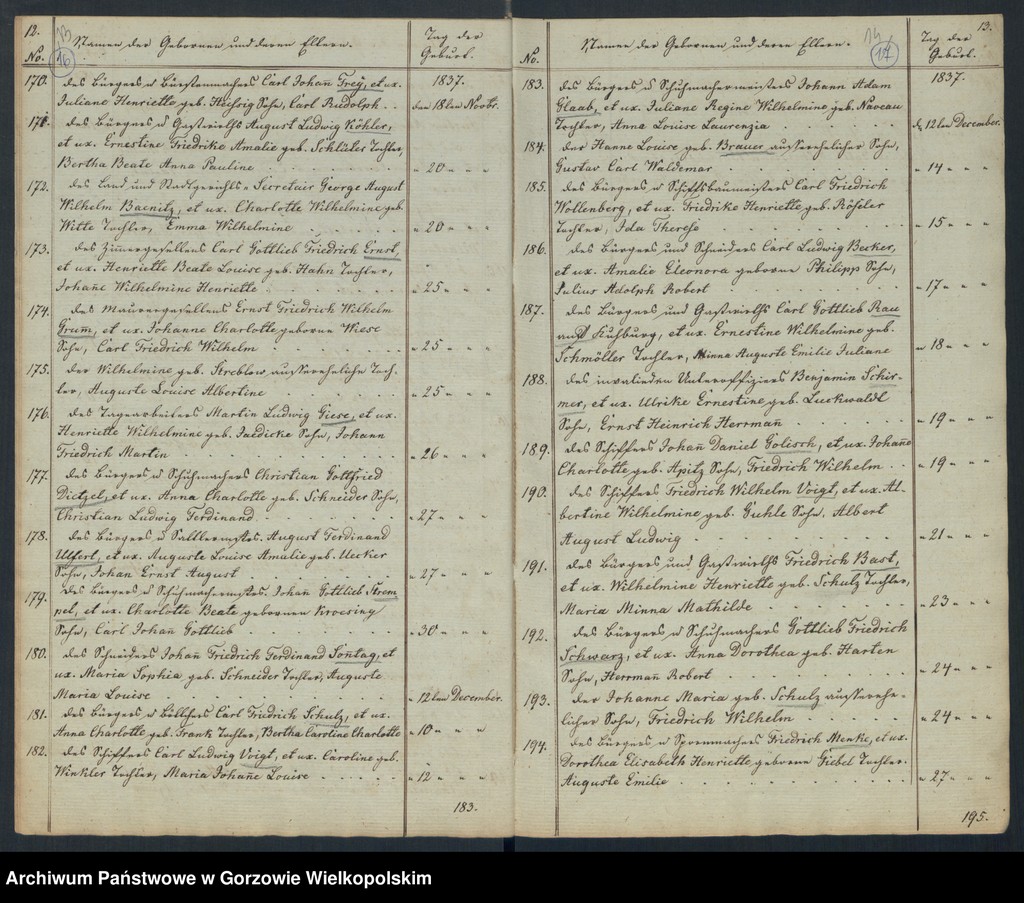 12.
13
16
No.
Namen der Gebornen und deren Eltern.
Tag der
Geburt.
1837.
170. des Bürgers u Bürstenmachers Carl Johan̄ Frey, et ux.
Juliane Henriette geb. Sohn, Carl Rudolph
den 18ten Novbr.
171. des Bürgers u Gastwirths August Ludwig Köhler,
et ux. Ernestine Friedrike Amalie geb. Schlüter Tochter,
Bertha Beate Anna Pauline
" 20 " " "
172. des Land und Stadtgerichts-Secretair George August
Wilhelm Baenitz, et ux. Charlotte Wilhelmine geb.
Witte Tochter, Emma Wilhelmine
" 20 " " "
173. des Zim̄ergesellens Carl Gottlieb Friedrich Ernst,
et ux. Henriette Beate Louise geb. Hahn Tochter,
Johan̄e Wilhelmine Henriette
" 25 " " "
174. des Maurergesellens Ernst Friedrich Wilhelm
Grum, et ux. Johanne Charlotte geborne Wiese
Sohn, Carl Friedrich Wilhelm
" 25 " " "
175. der Wilhelmine geb. Streblow, außereheliche Toch-
ter, Auguste Louise Albertine
" 25 " " "
176. des Tagearbeiters Martin Ludwig Giese, et ux.
Henriette Wilhelmine geb. Jaedicke Sohn, Johann
Friedrich Martin
" 26 " " "
177. des Bürgers u Schuhmachers Christian Gottfried
Dietzel, et ux. Anna Charlotte geb. Schneider Sohn,
Christian Ludwig Ferdinand
" 27 " " "
178. des Bürgers u Sattlermstrs. August Ferdinand
Ulfert, et ux. Auguste Louise Amalie geb. Uecker
Sohn, Johan Ernst August
" 27 " " "
179. des Bürgers u Schuhmachermstrs. Johan Gottlieb Strem
pel, et ux. Charlotte Beate gebornen Kroesing
Sohn, Carl Johan̄ Gottlieb
" 30 " " "
180. des Schneiders Johan̄ Friedrich Ferdinand Son̄tag, et
ux. Maria Sophia geb. Schneider Tochter, Auguste
Maria Louise
" 12ten December.
181. des Bürgers u Böttchers Carl Friedrich Schulz, et ux.
Anna Charlotte geb. Frank Tochter, Bertha Caroline Charlotte
" 10 " " "
182. des Schiffers Carl Ludwig Voigt, et ux. Caroline geb.
Winkler Tochter, Maria Johan̄e Louise
" 12 " " "
183.
13.
14
17
No.
Namen der Gebornen und deren Eltern.
Tag der
Geburt.
1837.
183. des Bürgers u Schuhmachermeisters Johann Adam
Glaab, et ux. Juliane Regine Wilhelmine geb. Naveau
Tochter, Anna Louise Laurenzia
d. 12ten December.
184. der Hanne Louise geb. Brauer außerehelicher Sohn,
Gustav Carl Waldemar
" 14 " " "
185. des Bürgers u Schiffsbaumeisters Carl Friedrich
Wollenberg, et ux. Friedrike Henriette geb. Rößeler
Tochter, Ida Therese
" 15 " " "
186. des Bürgers und Schneiders Carl Ludwig Becker,
et ux. Amalie Eleonora geborne Philipp Sohn,
Julius Adolph Robert
" 17 " " "
187. des Bürgers und Gastwirths Carl Gottlieb Rau
auf Kuhburg, et ux. Ernestine Wilhelmine geb.
Schmöller Tochter, Minna Auguste Emilie Juliane
" 18 " " "
188. des invaliden Unteroffiziers Benjamin Schir-
mer, et ux. Ulrike Ernestine geb. Luckwaldt
Sohn, Ernst Heinrich Herrman
" 19 " " "
189. des Schiffers Johan̄ Daniel Golisch, et ux. Johan̄e
Charlotte geb. Apitz Sohn, Friedrich Wilhelm
" 19 " " "
190. des Schiffers Friedrich Wilhelm Voigt, et ux. Al-
bertine Wilhelmine, geb. Guhle Sohn, Albert
August Ludwig
" 21 " " "
191. des Bürgers und Gastwirths Friedrich Bast,
et ux. Wilhelmine Henriette geb. Schulz Tochter,
Maria Minna Mathilde
" 23 " " "
192. des Bürgers u Schuhmachers Gottlieb Friedrich
Schwarz, et ux. Anna Dorothea geb. Harten
Sohn, Herrman̄ Robert
" 24 " " "
193. der Johanne Maria geb. Schulz außerehe-
licher Sohn, Friedrich Wilhelm
" 24 " " "
194. des Bürgers u Sporenmachers Friedrich Menke, et ux.
Dorothea Elisabeth Henriette geborne Giebel Tochter
Auguste Emilie
" 27 " " "
195.
Archiwum Państwowe w Gorzowie Wielkopolskim